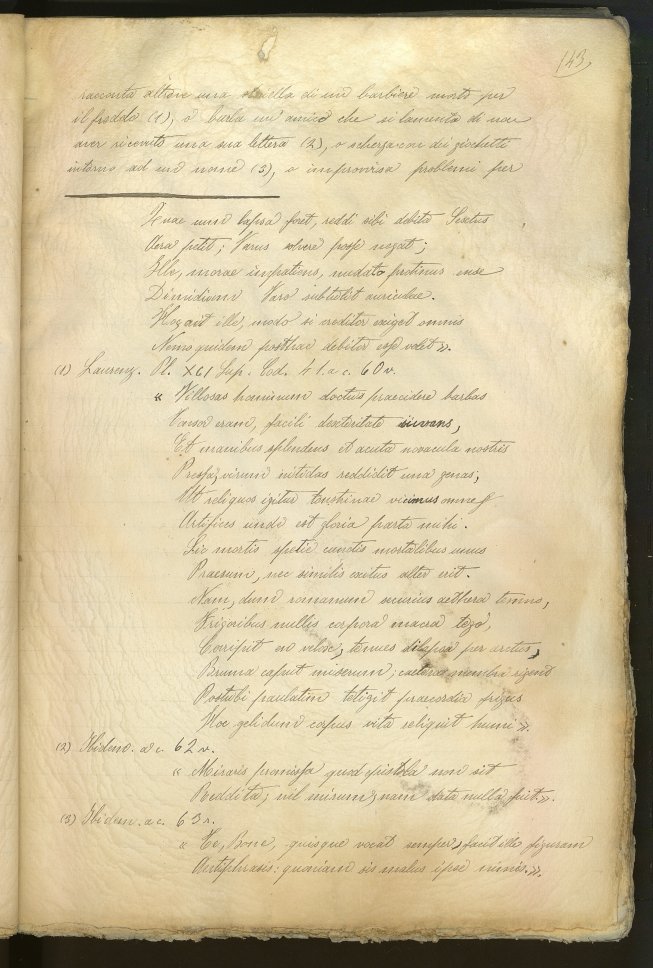 143,
racconta altrove una novella di un barbiere morto per
il freddo (1), o burla un amico che si lamenta di non
aver ricevuto una sua lettera (2), o scherza con dei giochetti
intorno ad un nome (3), o improvvisa problemi per
Quae cum lapsa foret, reddi sibi debita Sextus
Aera petit; Varus solvere posse negat;
Ille, morae impatiens, nudato protinus ense
Dimidium Varo subtulit auriculae.
ait ille, modo si creditor exiget omnis
Nemo quidem posthac debitor esse volet».
(1) Laurenz. Pl. XCI Sup. Cod. 41 a c. 60 v.
« Villosas hominum doctus praecidere barbas
Tonsor eram, facili dexteritate iuvans,
Et manibus splendens et acuta novacula nostris
Pressa, virum nitidas reddidit una genas;
Ut reliquos igitur tonstrinae vicimus omnes
Artifices unde est gloria parta mihi.
Sic mortis spetie cunctis mortalibus unus
Praesum, nec similis exitus alter erit.
Nam, dum romanum securius aethera temno,
Frigoribus nullis corpora macra tego,
Corripit en velox, tenues dilapsa per artus,
Bruma caput miserum; caetera membra rigent
Postubi paulatim tetigit praecordia frigus
Hoc gelidum corpus vita reliquit humi».
(2) Ibidem. a c. 62 v.
« Miraris promissa quod epistola non sit
Reddita; nil mirum; nam data nulla fuit.».
(3) Ibidem. a c. 63 r.
« Te, Bone, quisque vocat semper, facit ille figuram
Antiphrasis: quoniam sis malus ipse nimis.».